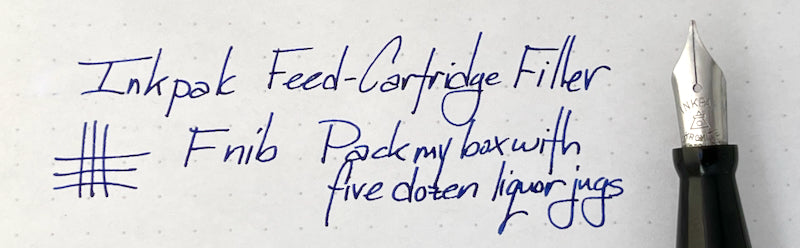 Inkpak Feed-Cartridge Filler
F nib Pack my box with
five dozen liquor jugs